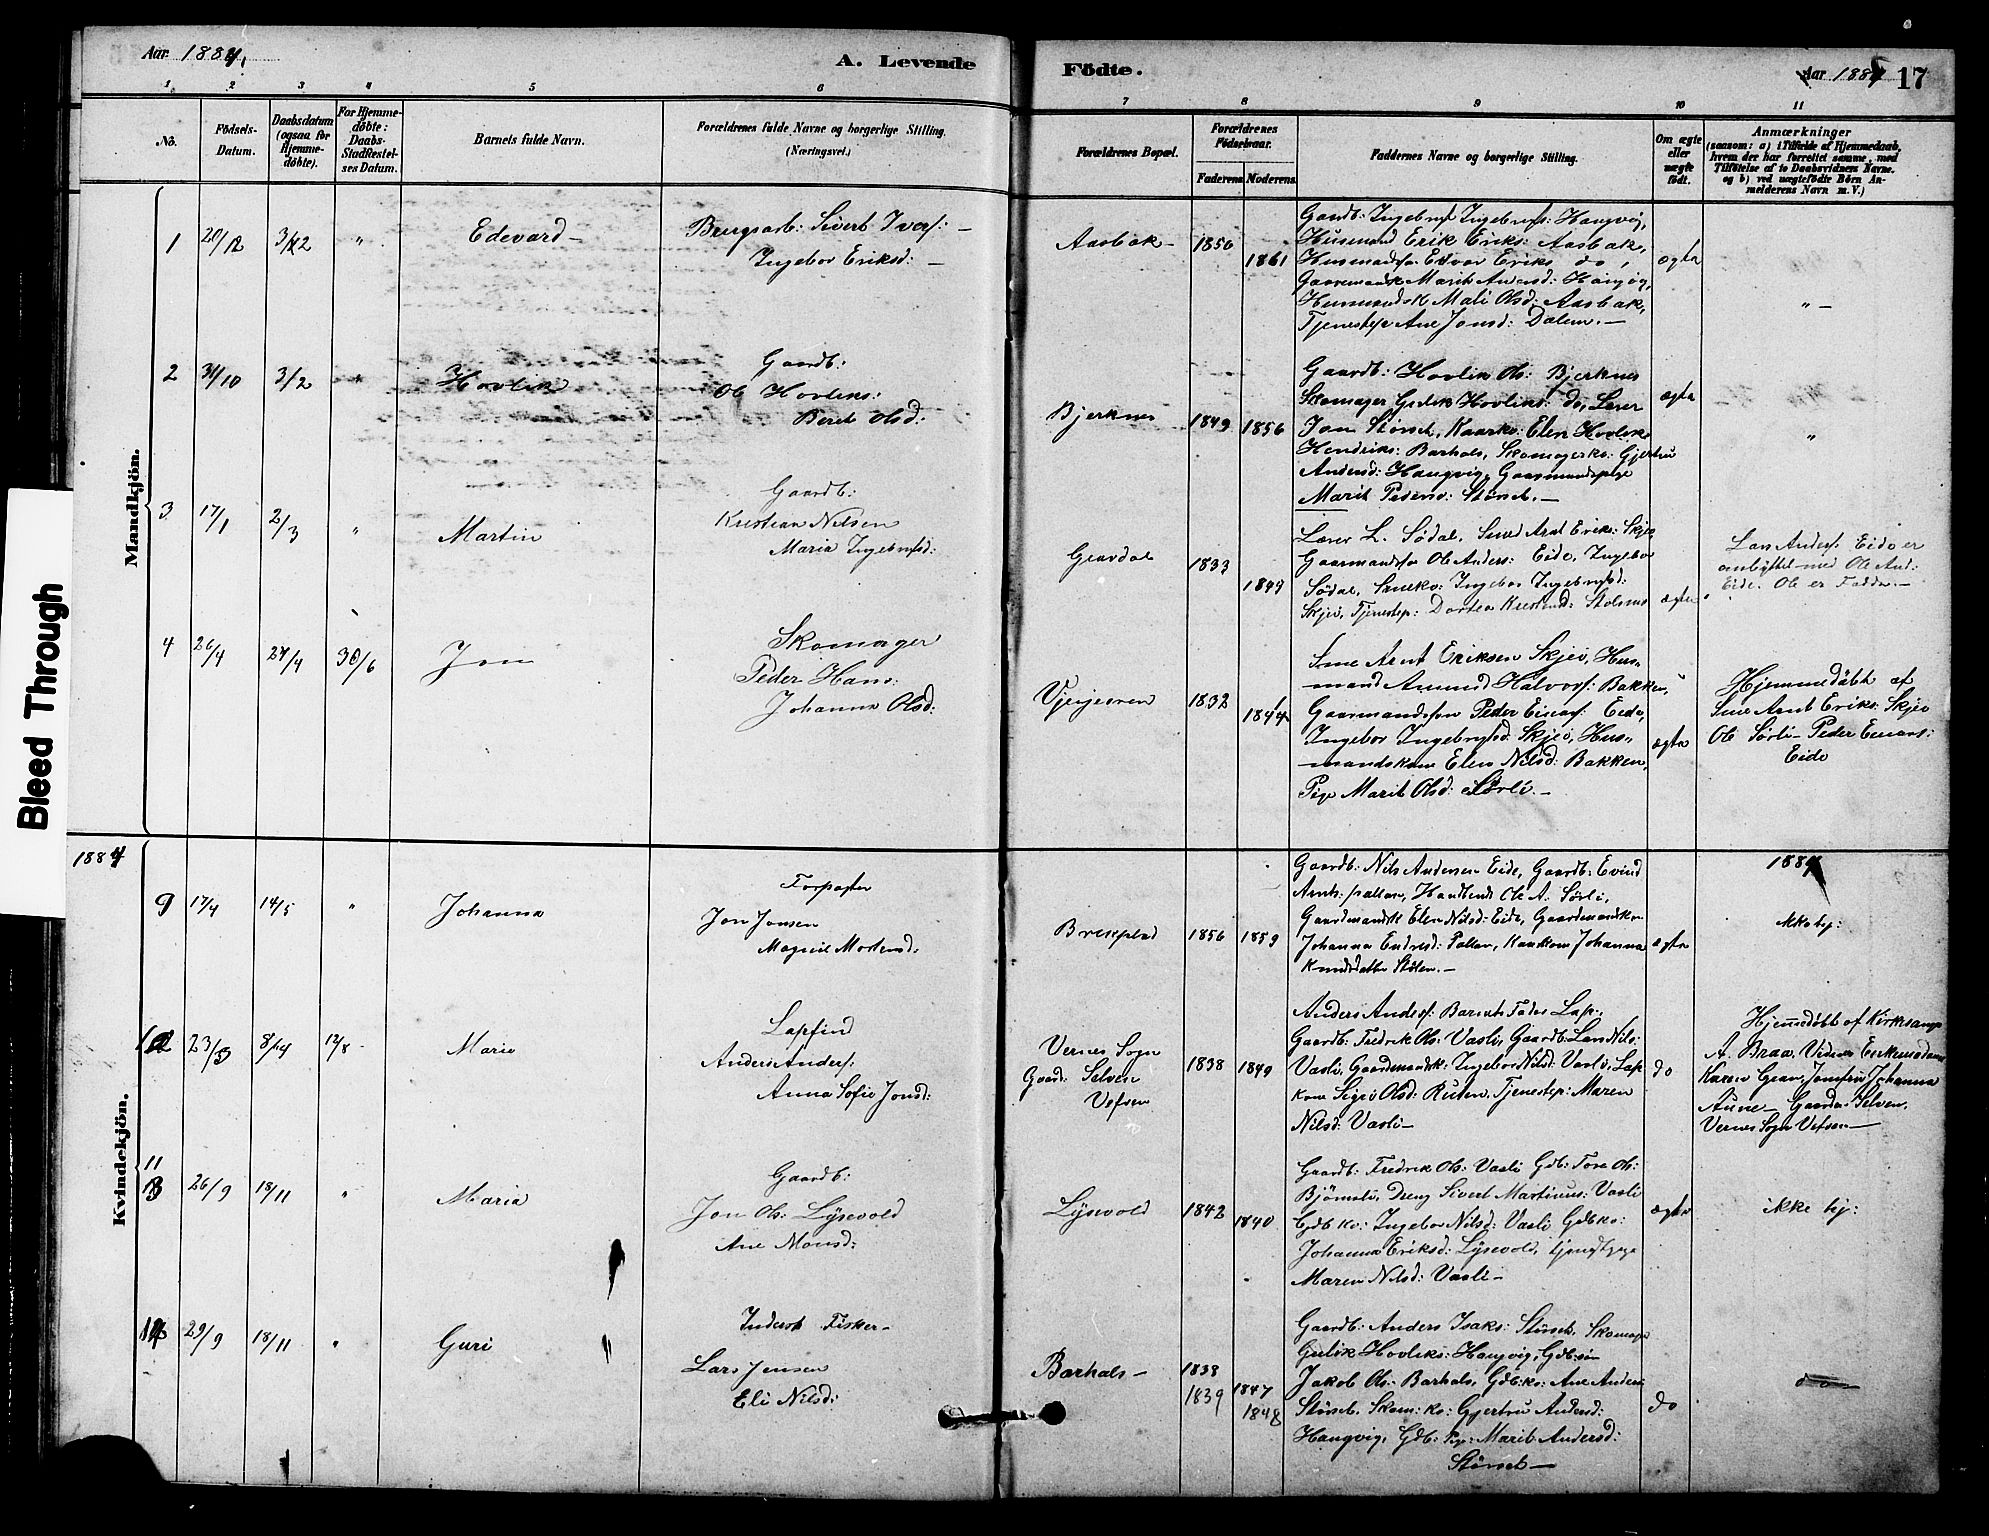 Aar 1884.
A. Levende
Födte.
Aar 1884
17
1 2 3 4 5 6 7 8 9 10 11
No.
Födsels-
Datum.
Daabsdatum
(ogsaa for
Hjemme-
döbte).
For Hjemme-
döbte:
Daabs-
Stadfæstel-
ses Datum.
Barnets fulde Navn.
Forældrenes fulde Navne og borgerlige Stilling.
(Næringsvei.)
Forældrenes Bopæl.
Forældrenes
Födselsaar.
Faderens Moderens
Faddernes Navne og borgerlige Stilling.
Om ægte
eller
uægte
födt.
Anmærkninger
(saasom: a) i Tilfælde af Hjemmedaab,
hvem der har forrettet samme, med
Tilföielse af to Daabsvidners Navne.
og b) ved uægtefödte Börn An-
melderens Navn m. V.)
Mandkjön.
1 20/12 3/2 " Edevard -
Brugsarb: Sivert Ivers: -
Ingebor Eriksd: -
Aasbak - 1856 1861
Gaardb: Ingebr Ingebr: Haugvig,
Husmand Erik Eriks: Aasbak,
Husmands Edvar Eriks do,
Marit Andersd:
Mali Olsd: Aasbak,
Ane Jonsd: Dalem. -
ægta
" -
2 31/10 3/2 " Hovlik
Gaardb:
Ole Hovliks:
Berit Olsd:
Bjerknes 1849 1856
Gaardb: Hovlik Ols: Bjerknes
Skomager Gulik Hovliks: do, Lærer
Jon Störset, Elen Hovliks
Hendriks: Barhals, Skomagerko: Gjertru
Andersd: Haugvig,
Marit Pedersd: Störset. -
ægta
"
3 17/1 2/3 " Martin
Gaardb:
Kristian Nilsen
Maria Ingebrigtsd:
1833 1849
Lærer L. Södal, Smed Arnt Eriks: Skjei
Gaarmandsøn Ole Anders: Eide, Ingebor
Södal, Ingebor Ingebrigtsd:
Skjei, Tjenestep: Dortea
ægta
Lars Anders: Eide er
ombyttet med Ole And:
Eide. Ole er Fadder. -
4 26/4 27/4 30/6 Jon
Skomager
Peder Hans:
Johanna Olsd:
1832 1844
Sme Arnt Eriksen Skjei, Hus-
mand Amund Halvors: Bakken,
Gaarmandssøn Peder Einars: Eide,
Ingebor Ingebrigtsd: Skjei, Hus-
mandskone Elen Nilsd: Bakken,
Pige Marit Olsd: Sörli. -
ægta
Hjemmedöbt af
Sme Arnt Eriks: Skjei
Ole Sörli - Peder Einars:
Eide
Bleed Through
1884
1884
Kvindekjön.
9 17/4 14/5 " Johanna
Forpagter
Jon Jonsen
Magnil Mortensd:
Brekplad 1856 1859
Gaardb: Nils Andersen Eide, Gaardb: Evind
Ole A. Sörli,
Elen Nilsd: Eide,
Johanna Endresd: Pallen, Johanna
Knudsdatter Stölen. -
ægta
ikke hj:
10 23/3 8/4 12/8 Marie
Lapfind
Anders Anders:
Anna Sofie Jonsd:
Vernes Sogn
Gaard: Selven
Vefsen
1838 1849
Anders Anders: Barnets Fader Lap:
Gaardb: Fredrik Ols: Vasli, Gaardb: Lars Nils:
Vasli, Gaardmandsk: Ingebor Nilsd: Vasli, Lap
kone Sigri Olsd: Ruten, Tjenestep: Maren
Nilsd: Vasli -
do
Hjemmedöbt af Kirkesanger
A. Braa, Vidner
Karen Gran, Jomfru Johanna
Aune - Gaarden Selven,
Vernes Sogn Vefsen -
11 26/9 18/11 " Maria
Gaardb:
Jon Ols: Lysevold
Ane Monsd:
Lysevold 1842 1840
Gaardb: Fredrik Ols: Vasli Gdb: Tore Ols:
Dreng Sivert Martinus: Vasli
Gdbko: Ingebor Nilsd: Vasli Gdbko:
Johanna Eriksd: Lysevold, tjenestpige
Maren Nilsd: Vasli -
ægta
ikke hj:
29/9 18/11 " Guri
Inderst Fisker -
Lars Jensen
Eli Nilsd:
Barhals - 1838 1839 1847 1848
Gaardb: Anders Isaks: Störset, Skomager
Gulik Hovliks: Haugvig, Gdb:søn
Jakob Ols: Barhals, Gdb:ko: Ane Anders
Störset. Skom: ko: Gjertru Andersd:
Haugvig, Gdb: Pige: Marit Andersd:
Störset -
do